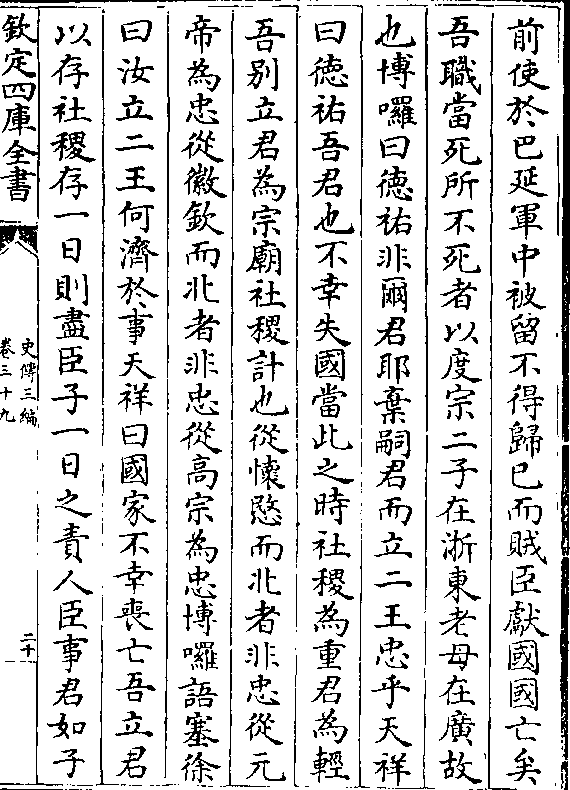 前使於巴延軍中被留不得歸已而賊臣獻國國亡矣
吾職當死所不死者以度宗二子在浙東老母在廣故
也博囉曰德祐非爾君耶棄嗣君而立二王忠乎天祥
曰德祐吾君也不幸失國當此之時社稷為重君為輕
吾别立君為宗廟社稷計也從懷愍而北者非忠從元
帝為忠從徽欽而北者非忠從高宗為忠博囉語塞徐
曰汝立二王何濟於事天祥曰國家不幸喪亡吾立君
以存社稷存一日則盡臣子一日之責人臣事君如子
欽定四庫全書
史傳三編
卷三十九
二十